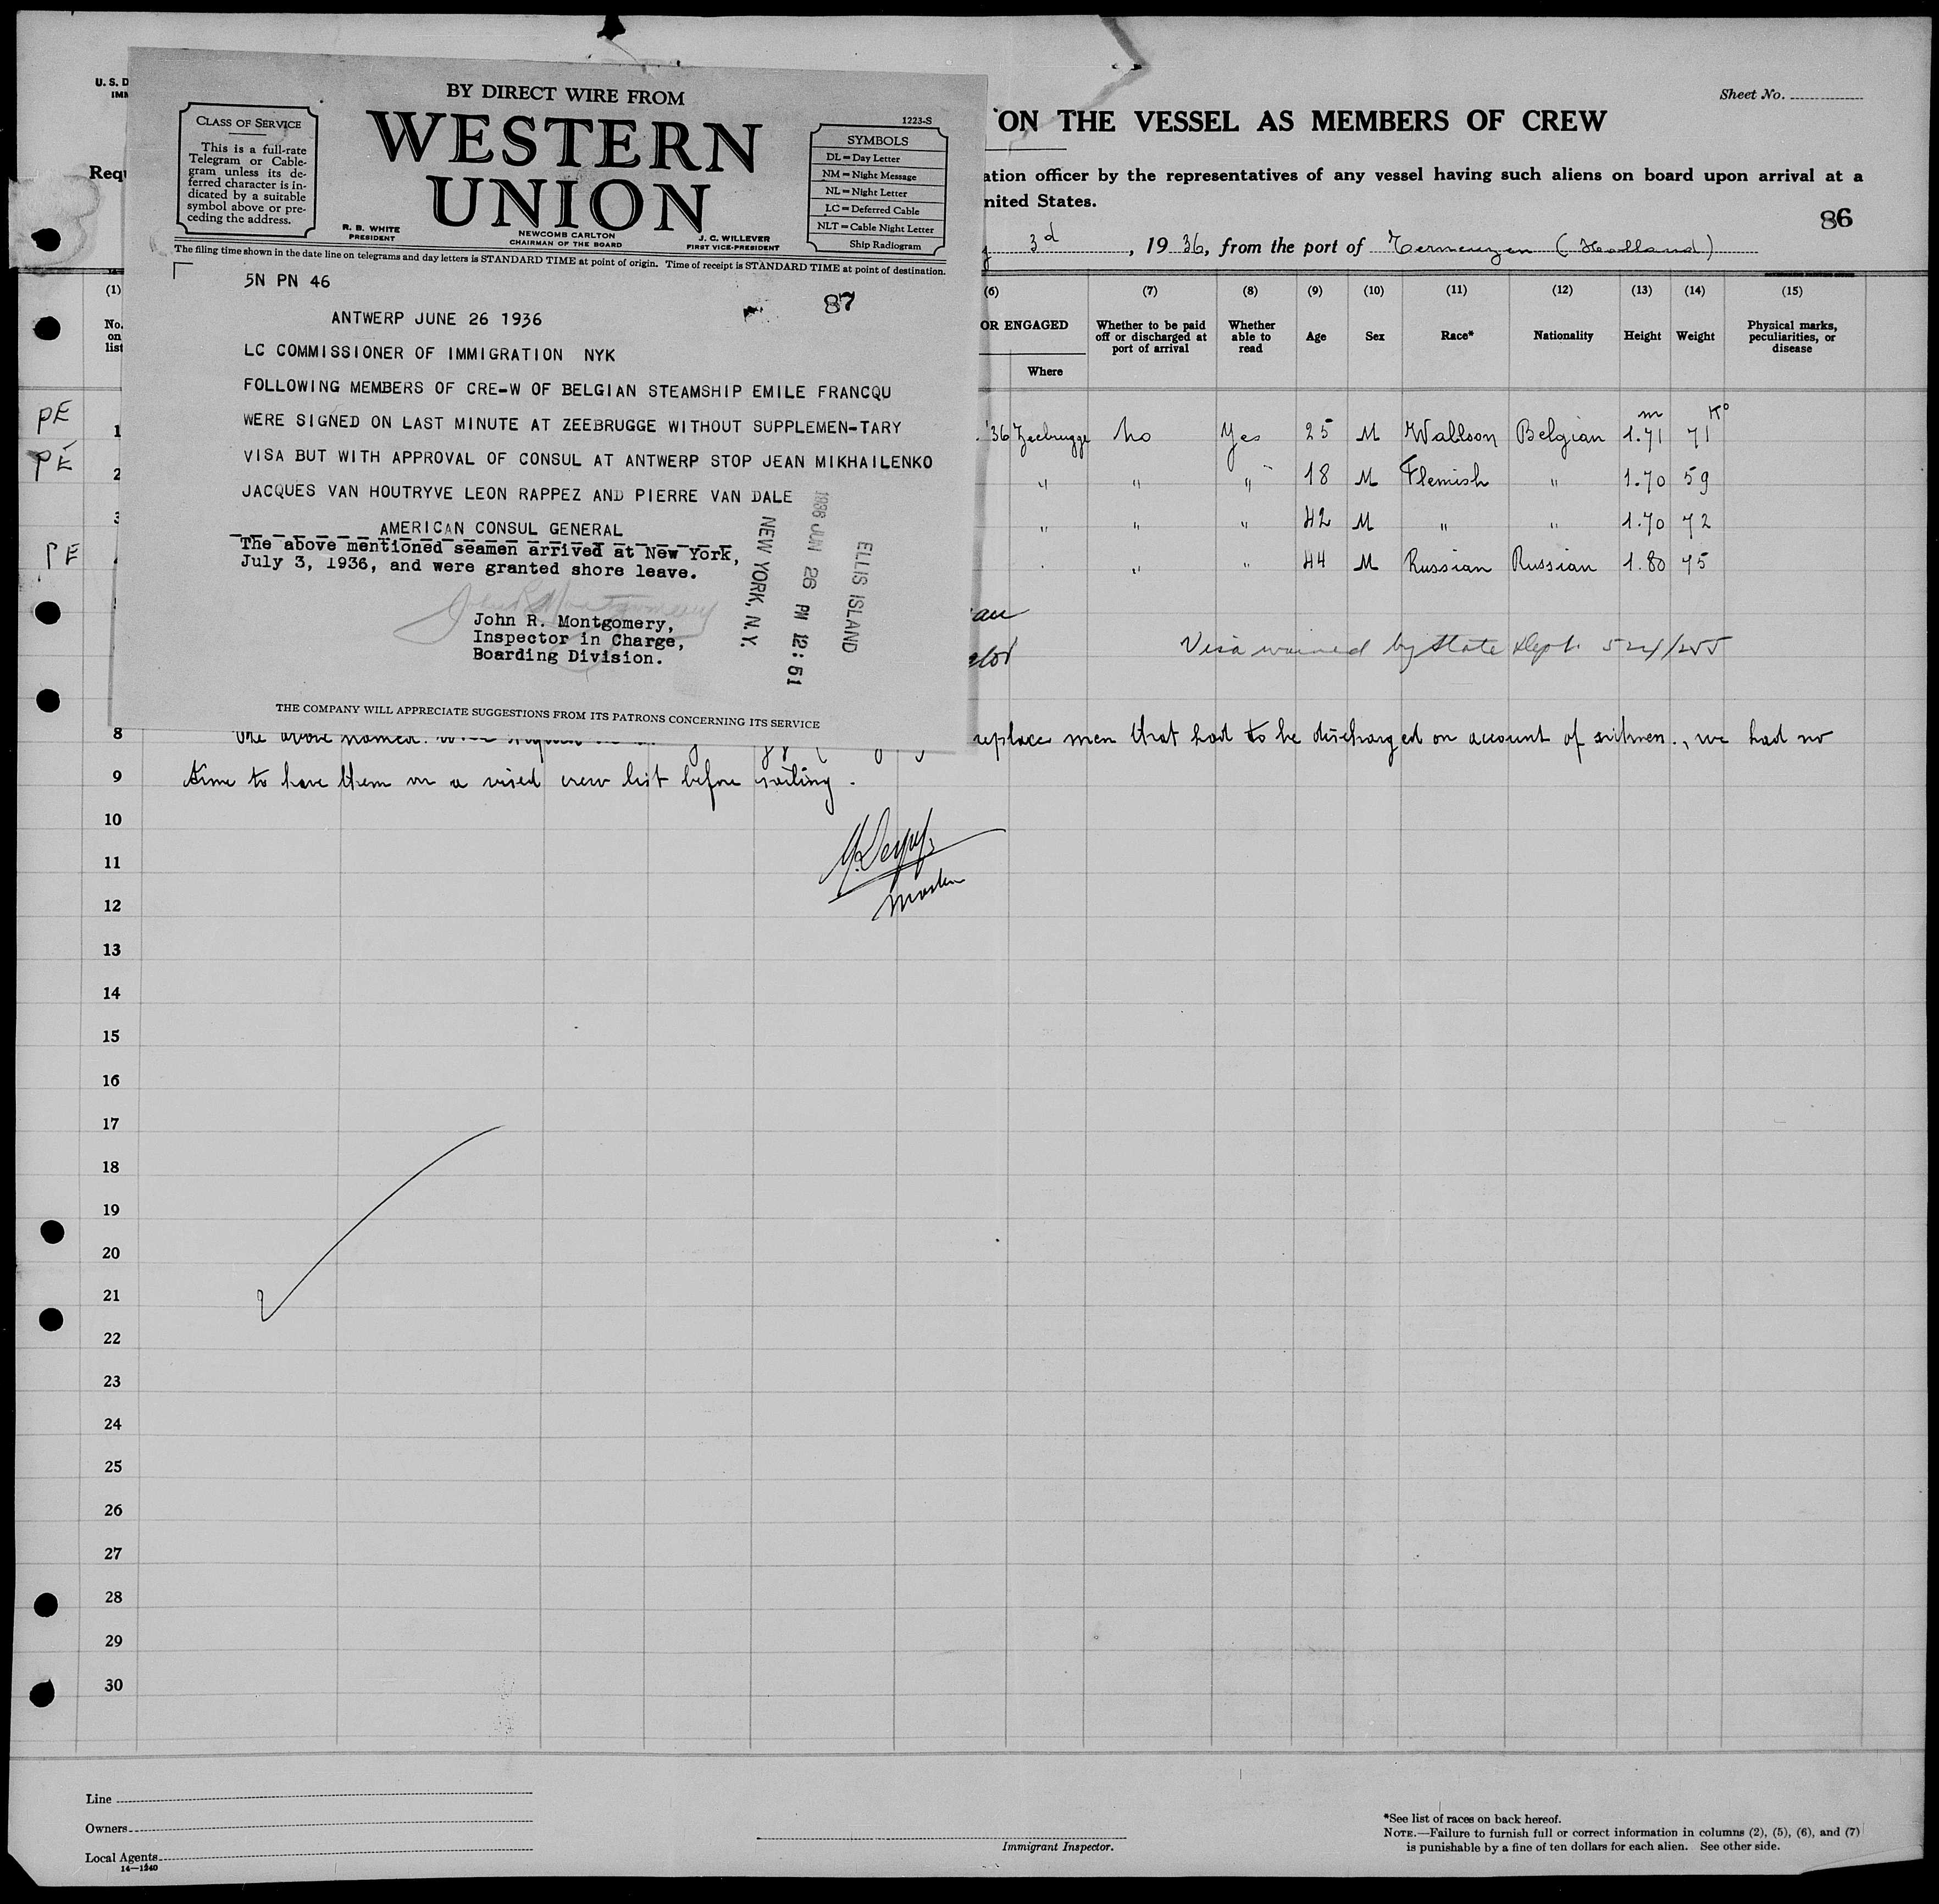 U. S. D
IMM
Sheet No.
ON THE VESSEL AS MEMBERS OF CREW
Requ
ation officer by the representatives of any vessel having such aliens on board upon arrival at a
nited States.
86
3d, 1936, from the port of Terneuzen (Holland)
BY DIRECT WIRE FROM
WESTERN
UNION
1223-S
CLASS OF SERVICE
This is a full-rate
Telegram or Cable-
gram unless its de-
ferred character is in-
dicated by a suitable
symbol above or pre-
ceding the address.
SYMBOLS
DL = Day Letter
NM = Night Message
NL = Night Letter
LC = Deferred Cable
NLT = Cable Night Letter
Ship Radiogram
R. B. WHITE
PRESIDENT
NEWCOMB CARLTON
CHAIRMAN OF THE BOARD
J. C. WILLEVER
FIRST VICE-PRESIDENT
The filing time shown in the date line on telegrams and day letters is STANDARD TIME at point of origin. Time of receipt is STANDARD TIME at point of destination.
5N PN 46
87
ANTWERP JUNE 26 1936
LC COMMISSIONER OF IMMIGRATION NYK
FOLLOWING MEMBERS OF CRE-W OF BELGIAN STEAMSHIP EMILE FRANCQU
WERE SIGNED ON LAST MINUTE AT ZEEBRUGGE WITHOUT SUPPLEMEN-TARY
VISA BUT WITH APPROVAL OF CONSUL AT ANTWERP STOP JEAN MIKHAILENKO
JACQUES VAN HOUTRYVE LEON RAPPEZ AND PIERRE VAN DALE
AMERICAN CONSUL GENERAL
The above mentioned seamen arrived at New York,
July 3, 1936, and were granted shore leave.
John R. Montgomery
John R. Montgomery,
Inspector in Charge,
Boarding Division.
ELLIS ISLAND
1936 JUN 26 PM 12:51
NEW YORK, N.Y.
THE COMPANY WILL APPRECIATE SUGGESTIONS FROM ITS PATRONS CONCERNING ITS SERVICE
(1) (6) (7) (8) (9) (10) (11) (12) (13) (14) (15)
No.
on
list
OR ENGAGED
Where
Whether to be paid
off or discharged at
port of arrival
Whether
able to
read
Age
Sex
Race*
Nationality
Height
Weight
Physical marks,
peculiarities, or
disease
m K°
PE 1 '36 Zeebrugge No Yes 25 M Walloon Belgian 1.71 71
PE 2 " " " 18 M Flemish " 1.70 59
3 " " " 42 M " " 1.70 72
PE " " 44 M Russian Russian 1.80 75
Visa waived by State Dept.
8 The above named replace men that had to be discharged on account of sickness., we had no
9 time to have them on a visied crew list before sailing.
10
11
Master
12
13
14
15
16
17
18
19
20
21
22
23
24
25
26
27
28
29
30
Line
Owners
Local Agents
14—1240
Immigrant Inspector.
*See list of races on back hereof.
NOTE.—Failure to furnish full or correct information in columns (2), (5), (6), and (7)
is punishable by a fine of ten dollars for each alien. See other side.